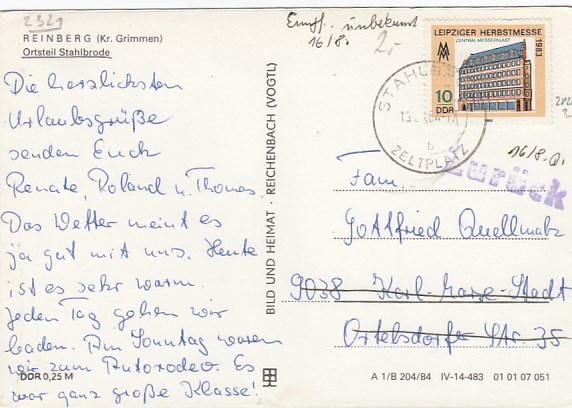 2321
REINBERG (Kr. Grimmen)
Ortsteil Stahlbrode
Empf. unbekannt
16/8.
LEIPZIGER HERBSTMESSE
ZENTRAL-MESSEPALAST
1983
10
DDR
STAHLB
ZELTPLATZ
b
16/8.
Zurück
Die herzlichsten
Urlaubsgrüße
senden Euch
Renate, Roland u. Thomas.
Das Wetter meint es
ja gut mit uns. Heute
ist es sehr warm.
Jeden Tag gehen wir
baden. Am Sonntag waren
wir zum Autorodeo. Es
war ganz große Klasse!
DDR 0,25 M
BILD UND HEIMAT · REICHENBACH (VOGTL)
Fam.
Gottfried Quellmalz
9038 Karl-Marx-Stadt
Ortelsdorfer Str. 35
A 1/B 204/84 IV-14-483 01 01 07 051